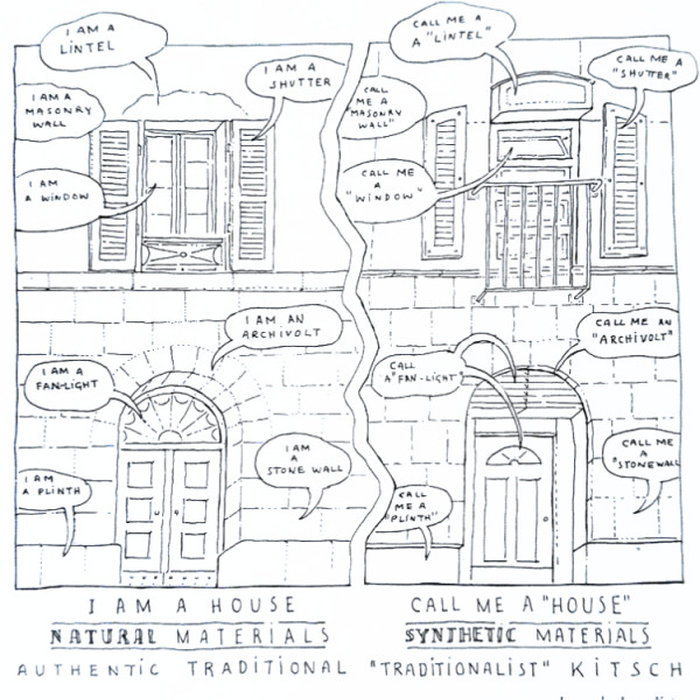 I AM A
LINTEL
I AM A
SHUTTER
I AM A
MASONRY
WALL
I AM
A WINDOW
I AM AN
ARCHIVOLT
I AM A
FAN-LIGHT
I AM
A
STONE WALL
I AM
A PLINTH
I AM A HOUSE
NATURAL MATERIALS
AUTHENTIC TRADITIONAL
CALL ME A
A "LINTEL"
CALL ME A
"SHUTTER"
CALL
ME A
"MASONRY
WALL"
CALL ME
A
"WINDOW"
CALL ME AN
"ARCHIVOLT"
CALL
A "FAN-LIGHT"
CALL ME
A
"STONEWALL
CALL
ME A
"PLINTH"
CALL ME A "HOUSE"
SYNTHETIC MATERIALS
"TRADITIONALIST" KITSCH